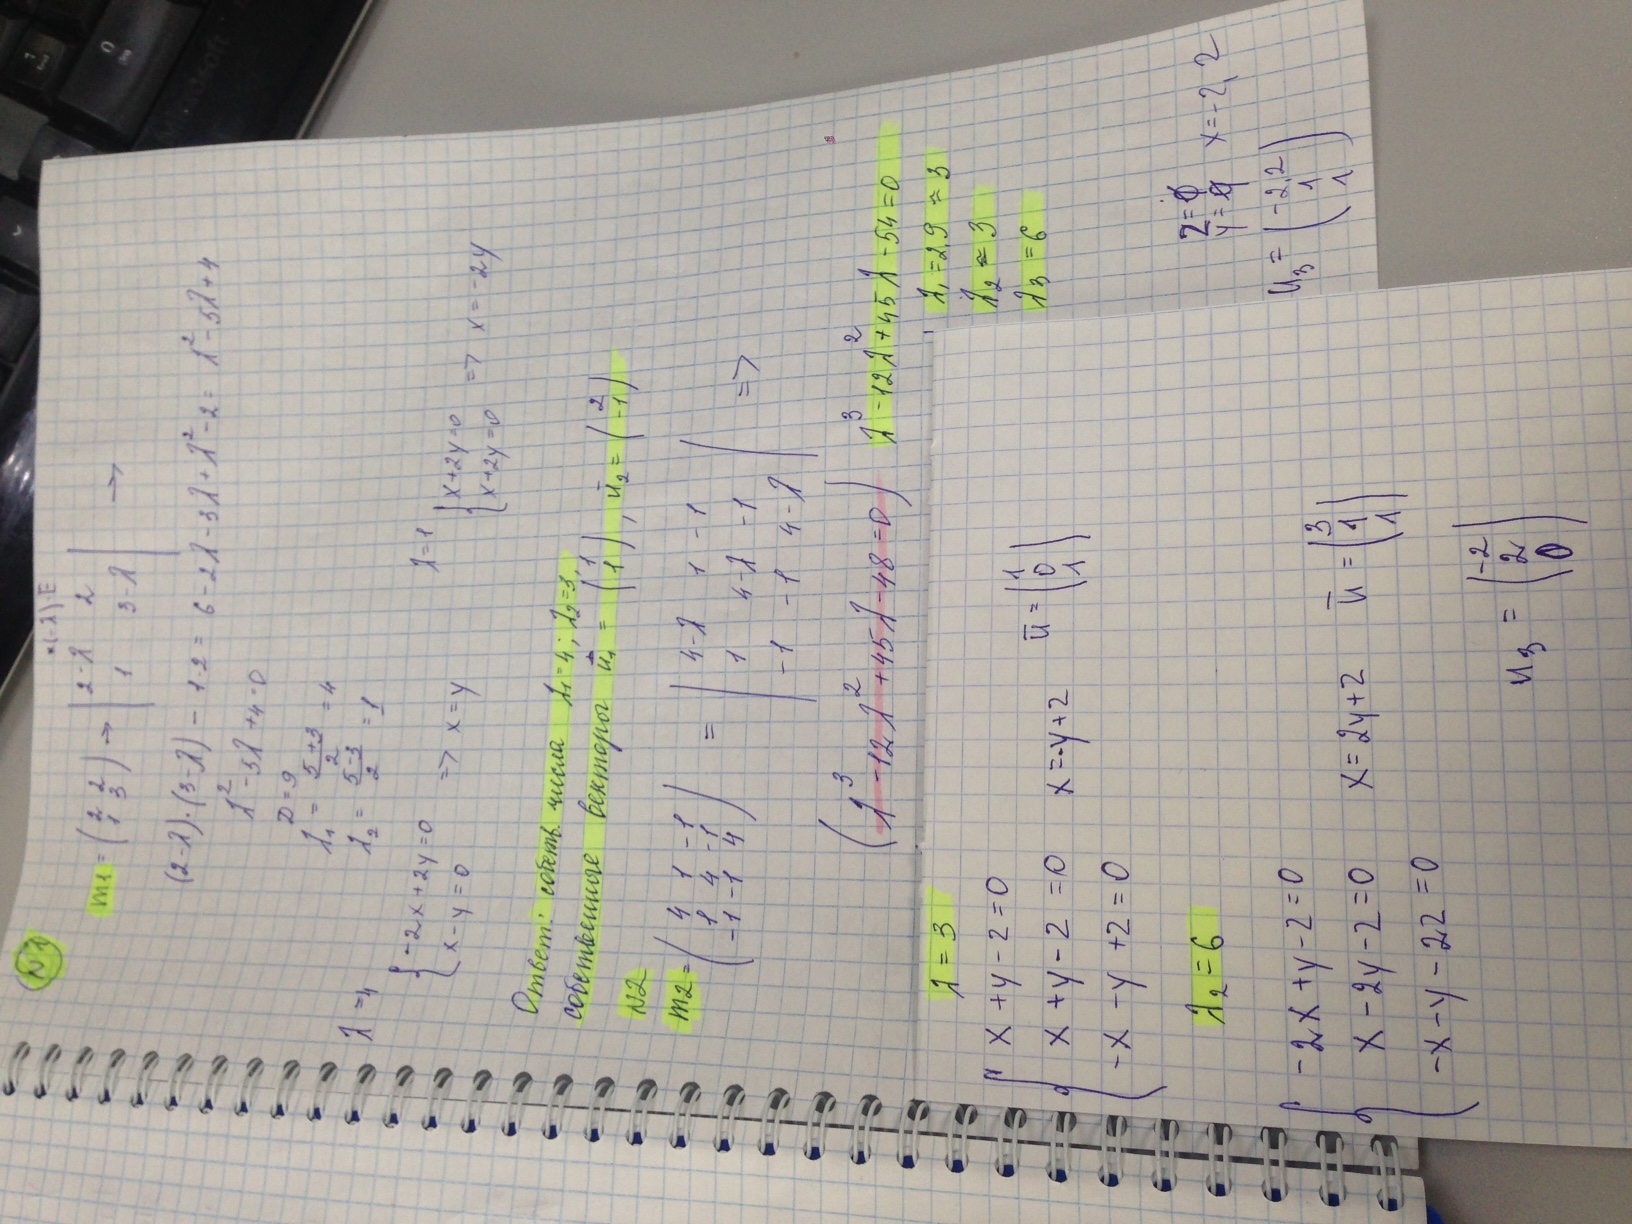 N1
*(-λ)·E
m1 = ( 2 2 / 1 3 ) → | 2-λ 2 / 1 3-λ | →
(2-λ)·(3-λ) - 1·2 = 6-2λ-3λ+λ²-2 = λ²-5λ+4
λ²-5λ+4=0
D=9
λ₁ = (5+3)/2 = 4
λ₂ = (5-3)/2 = 1
λ=4
{ -2x+2y=0
x-y=0 => x=y
λ=1
{ x+2y=0
x+2y=0 => x=-2y
Ответ: собств. числа λ₁=4; λ₂=3,
собственные векторы ū₁ = ( 1 / 1 ), ū₂ = ( 2 / -1 )
N2
m2 = ( 4 1 -1 / 1 4 -1 / -1 -1 4 ) = | 4-λ 1 -1 / 1 4-λ -1 / -1 -1 4-λ | =>
(λ³-12λ²+45λ-48=0) λ³-12λ²+45λ-54=0
λ₁=2,9 ≈ 3
λ₂ ≈ 3
λ₃ = 6
λ = 3
{ x+y-z=0
x+y-z=0 x=-y+z ū = ( 1 / 0 / 1 )
-x-y+z=0
λ₂=6
{ -2x+y-z=0
x-2y-z=0 x=2y+z ū = ( 3 / 1 / 1 )
-x-y-2z=0
u₃ = ( -2 / 2 / 0 )
z=
y=
x=-2,2
u₃ = ( -2,2 / 1 / 1 )
Microsoft
End